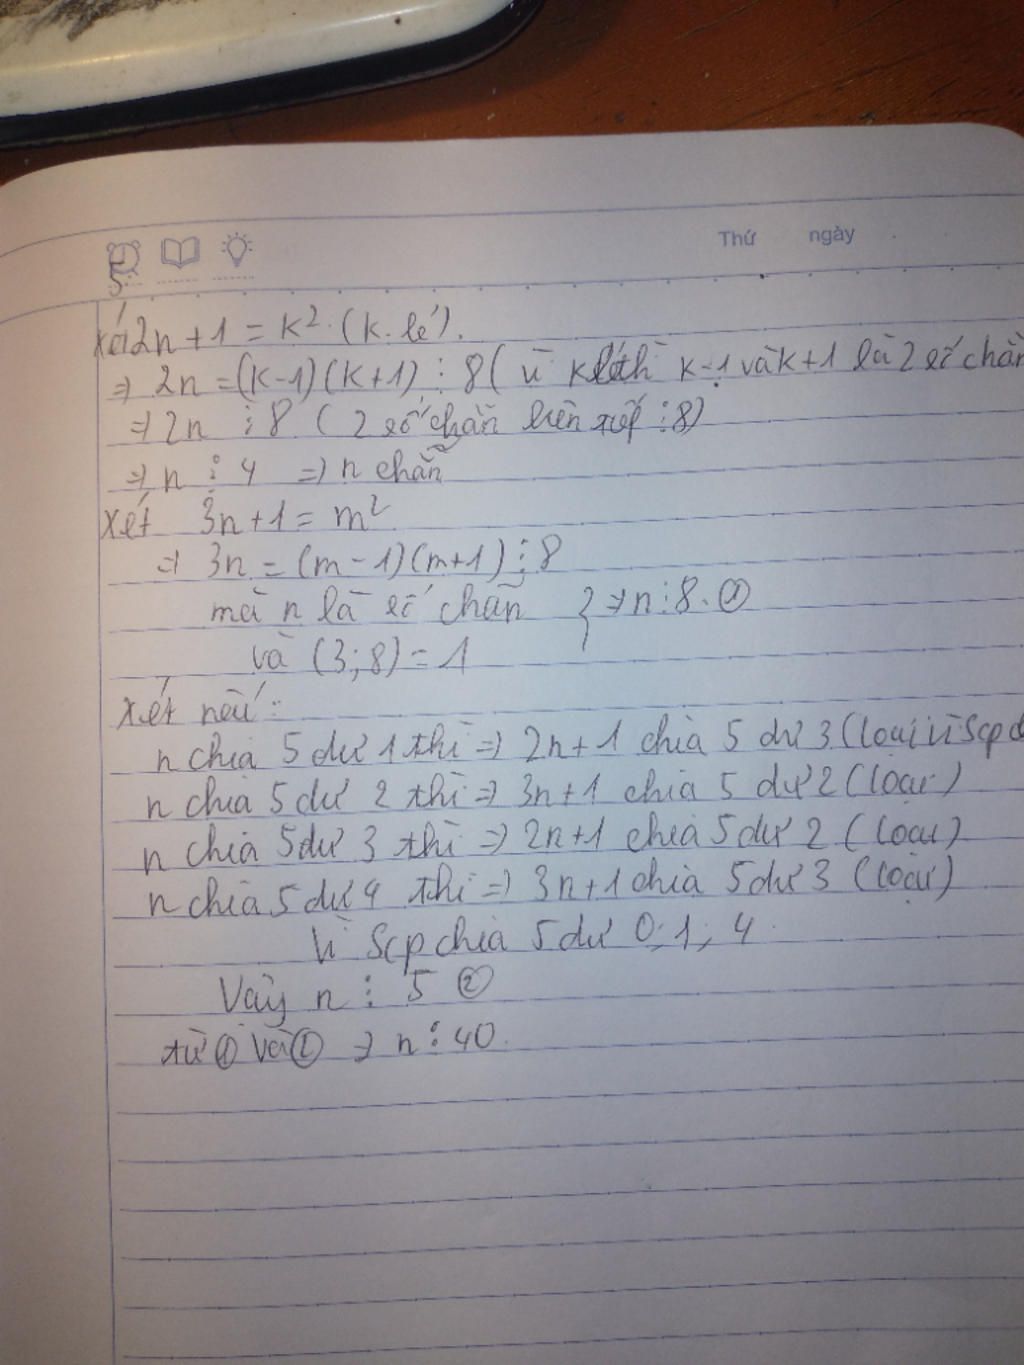 Thứ ngày
5
Xét 2n + 1 = k². (k lẻ).
⇒ 2n = (k-1)(k+1) ⋮ 8 ( vì k lẻ thì k-1 và k+1 là 2 số chẵn
⇒ 2n ⋮ 8 ( 2 số chẵn liên tiếp ⋮ 8)
⇒ n ⋮ 4 ⇒ n chẵn
Xét 3n+1 = m²
⇒ 3n = (m-1)(m+1) ⋮ 8
mà n là số chẵn } ⇒ n ⋮ 8. ①
và (3;8) = 1
Xét nếu :
n chia 5 dư 1 thì ⇒ 2n+1 chia 5 dư 3 (loại vì Scp
n chia 5 dư 2 thì ⇒ 3n+1 chia 5 dư 2 (loại)
n chia 5 dư 3 thì ⇒ 2n+1 chia 5 dư 2 (loại)
n chia 5 dư 4 thì ⇒ 3n+1 chia 5 dư 3 (loại)
Vì Scp chia 5 dư 0; 1; 4.
Vậy n ⋮ 5 ②
từ ① và ② ⇒ n ⋮ 40.